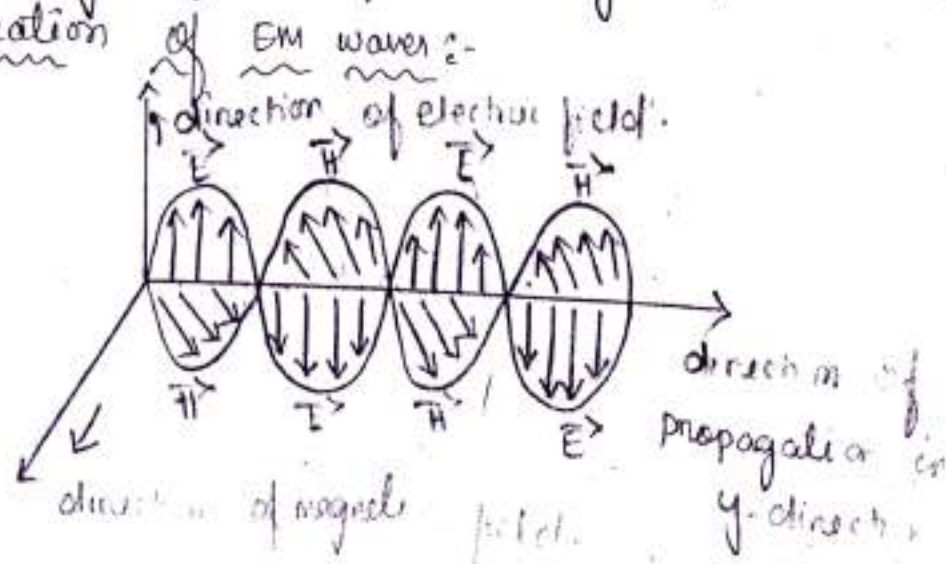 of EM waves :-
direction of electric field.
E H E H
H E H E
direction of
propagation in
y-direction
direction of magnetic field.